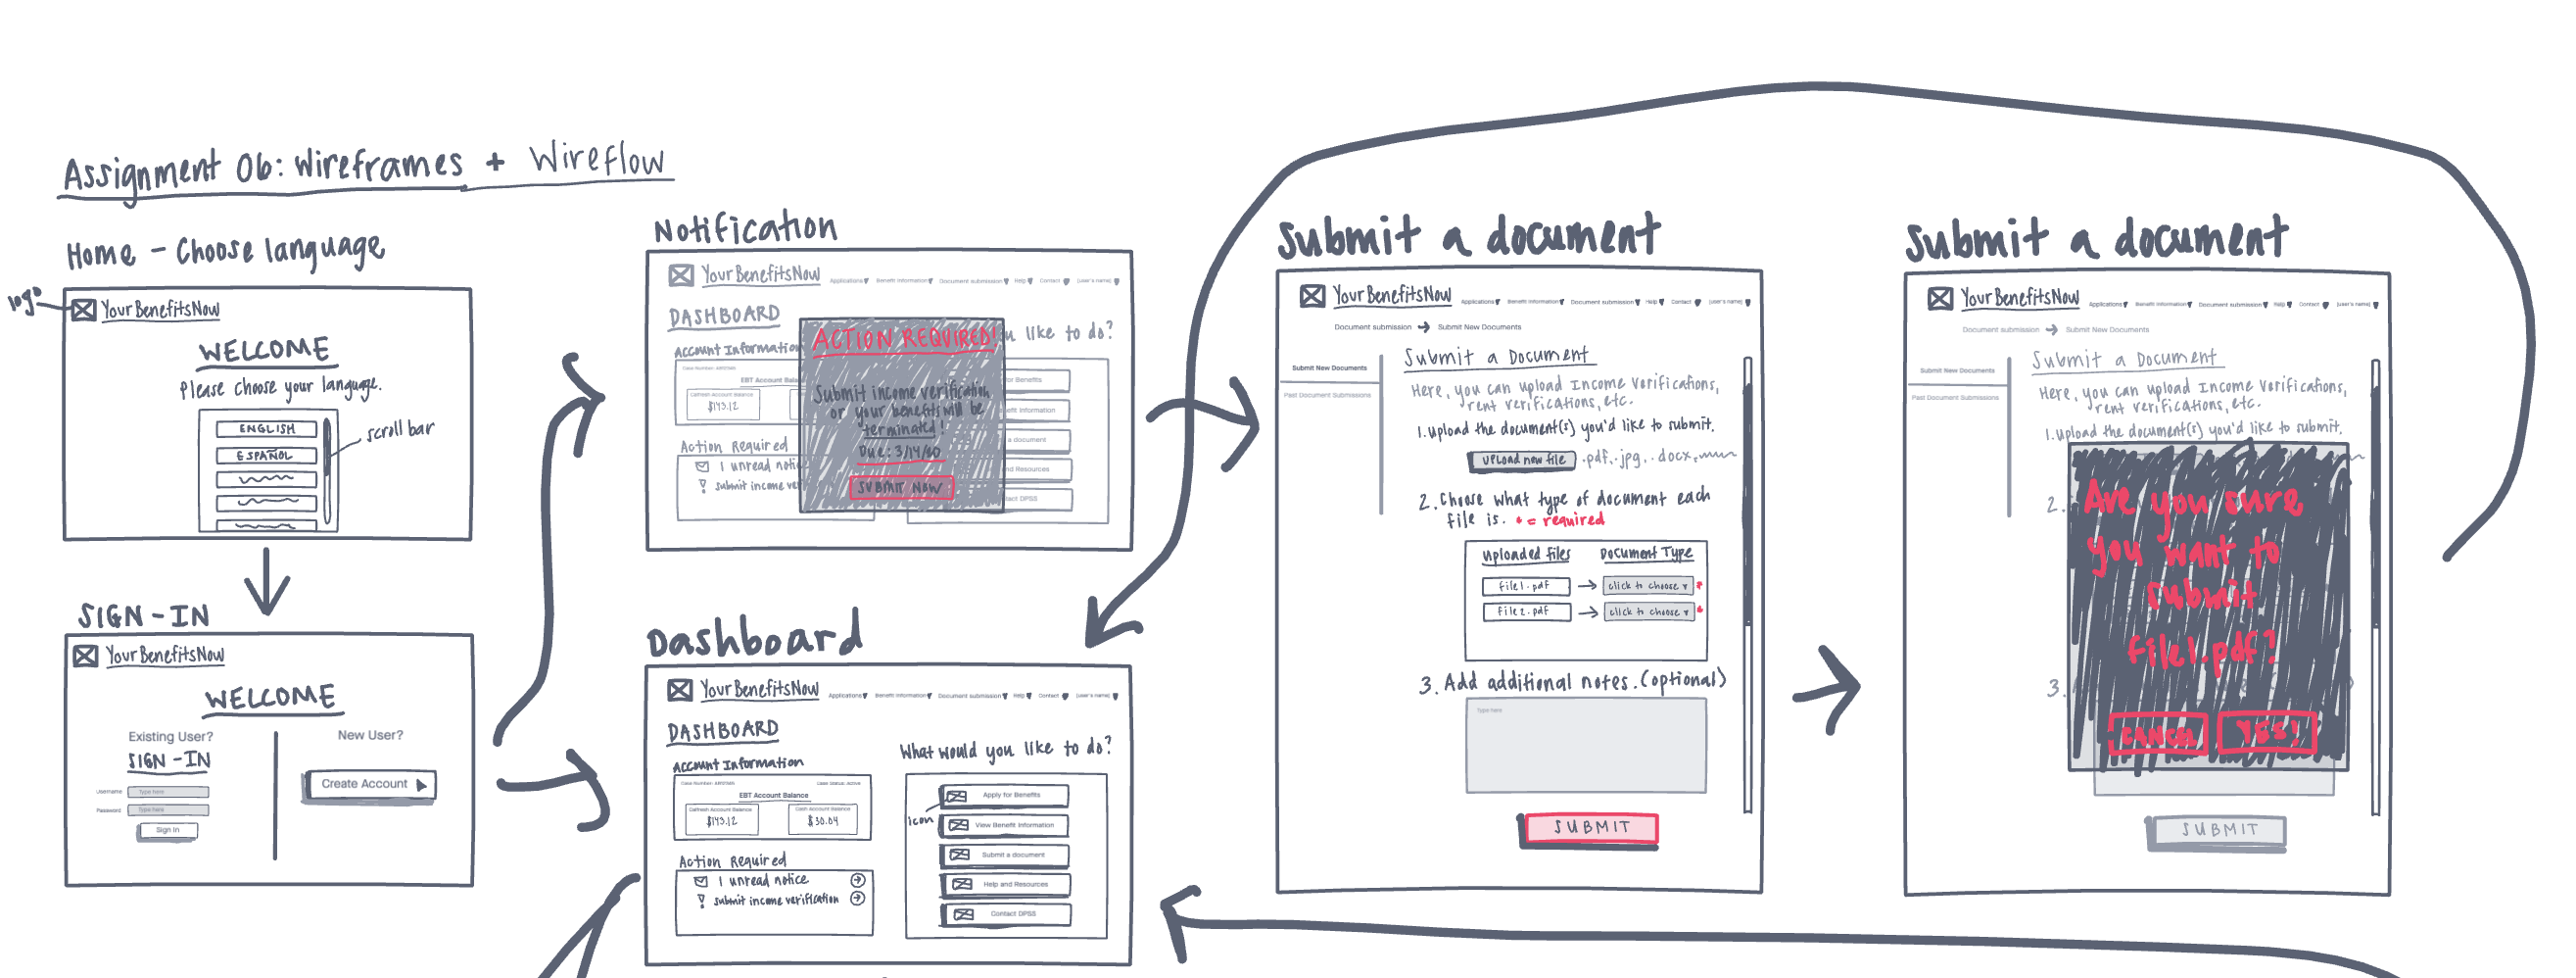 Assignment 06: Wireframes + Wireflow
Home - Choose language
logo
YourBenefitsNow
WELCOME
Please choose your language.
ENGLISH
ESPAÑOL
scroll bar
SIGN-IN
YourBenefitsNow
WELCOME
Existing User?
SIGN-IN
Username
Type here
Password
Type here
Sign In
New User?
Create Account
Notification
YourBenefitsNow
Applications Benefit Information Document submission Help Contact [user's name]
DASHBOARD
u like to do?
Account Information
EBT Account Bala
Calfresh Account Balance
$143.12
Action Required
1 unread notic
submit income ver
ACTION REQUIRED!
Submit income verification
or your benefits will be
terminated!
SUBMIT NOW
for Benefits
efit Information
a document
nd Resources
tact DPSS
Dashboard
YourBenefitsNow
Applications Benefit Information Document submission Help Contact [user's name]
DASHBOARD
Account Information
EBT Account Balance
Calfresh Account Balance
$143.12
Cash Account Balance
$30.04
Action Required
1 unread notice
submit income verification
What would you like to do?
icon
Apply for Benefits
View Benefit Information
Submit a document
Help and Resources
Contact DPSS
Submit a document
YourBenefitsNow
Applications Benefit Information Document submission Help Contact [user's name]
Document submission Submit New Documents
Submit New Documents
Past Document Submissions
Submit a Document
Here, you can upload Income Verifications,
rent verifications, etc.
1. Upload the document(s) you'd like to submit.
Upload new file .pdf, .jpg, .docx,
2. Choose what type of document each
file is. * = required
Uploaded files Document Type
file1.pdf click to choose *
file2.pdf click to choose *
3. Add additional notes. (optional)
Type here
SUBMIT
Submit a document
YourBenefitsNow
Applications Benefit Information Document submission Help Contact [user's name]
Document submission Submit New Documents
Submit New Documents
Past Document Submissions
Submit a Document
Here, you can upload Income Verifications,
rent verifications, etc.
1. Upload the document(s) you'd like to submit.
2.
Are you sure
you want to
submit
file1.pdf?
3.
CANCEL YES!
SUBMIT